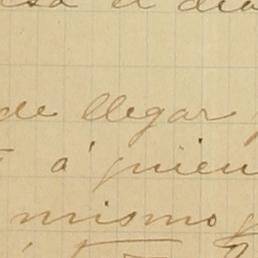 el dia
de llegar
á quien
mismo